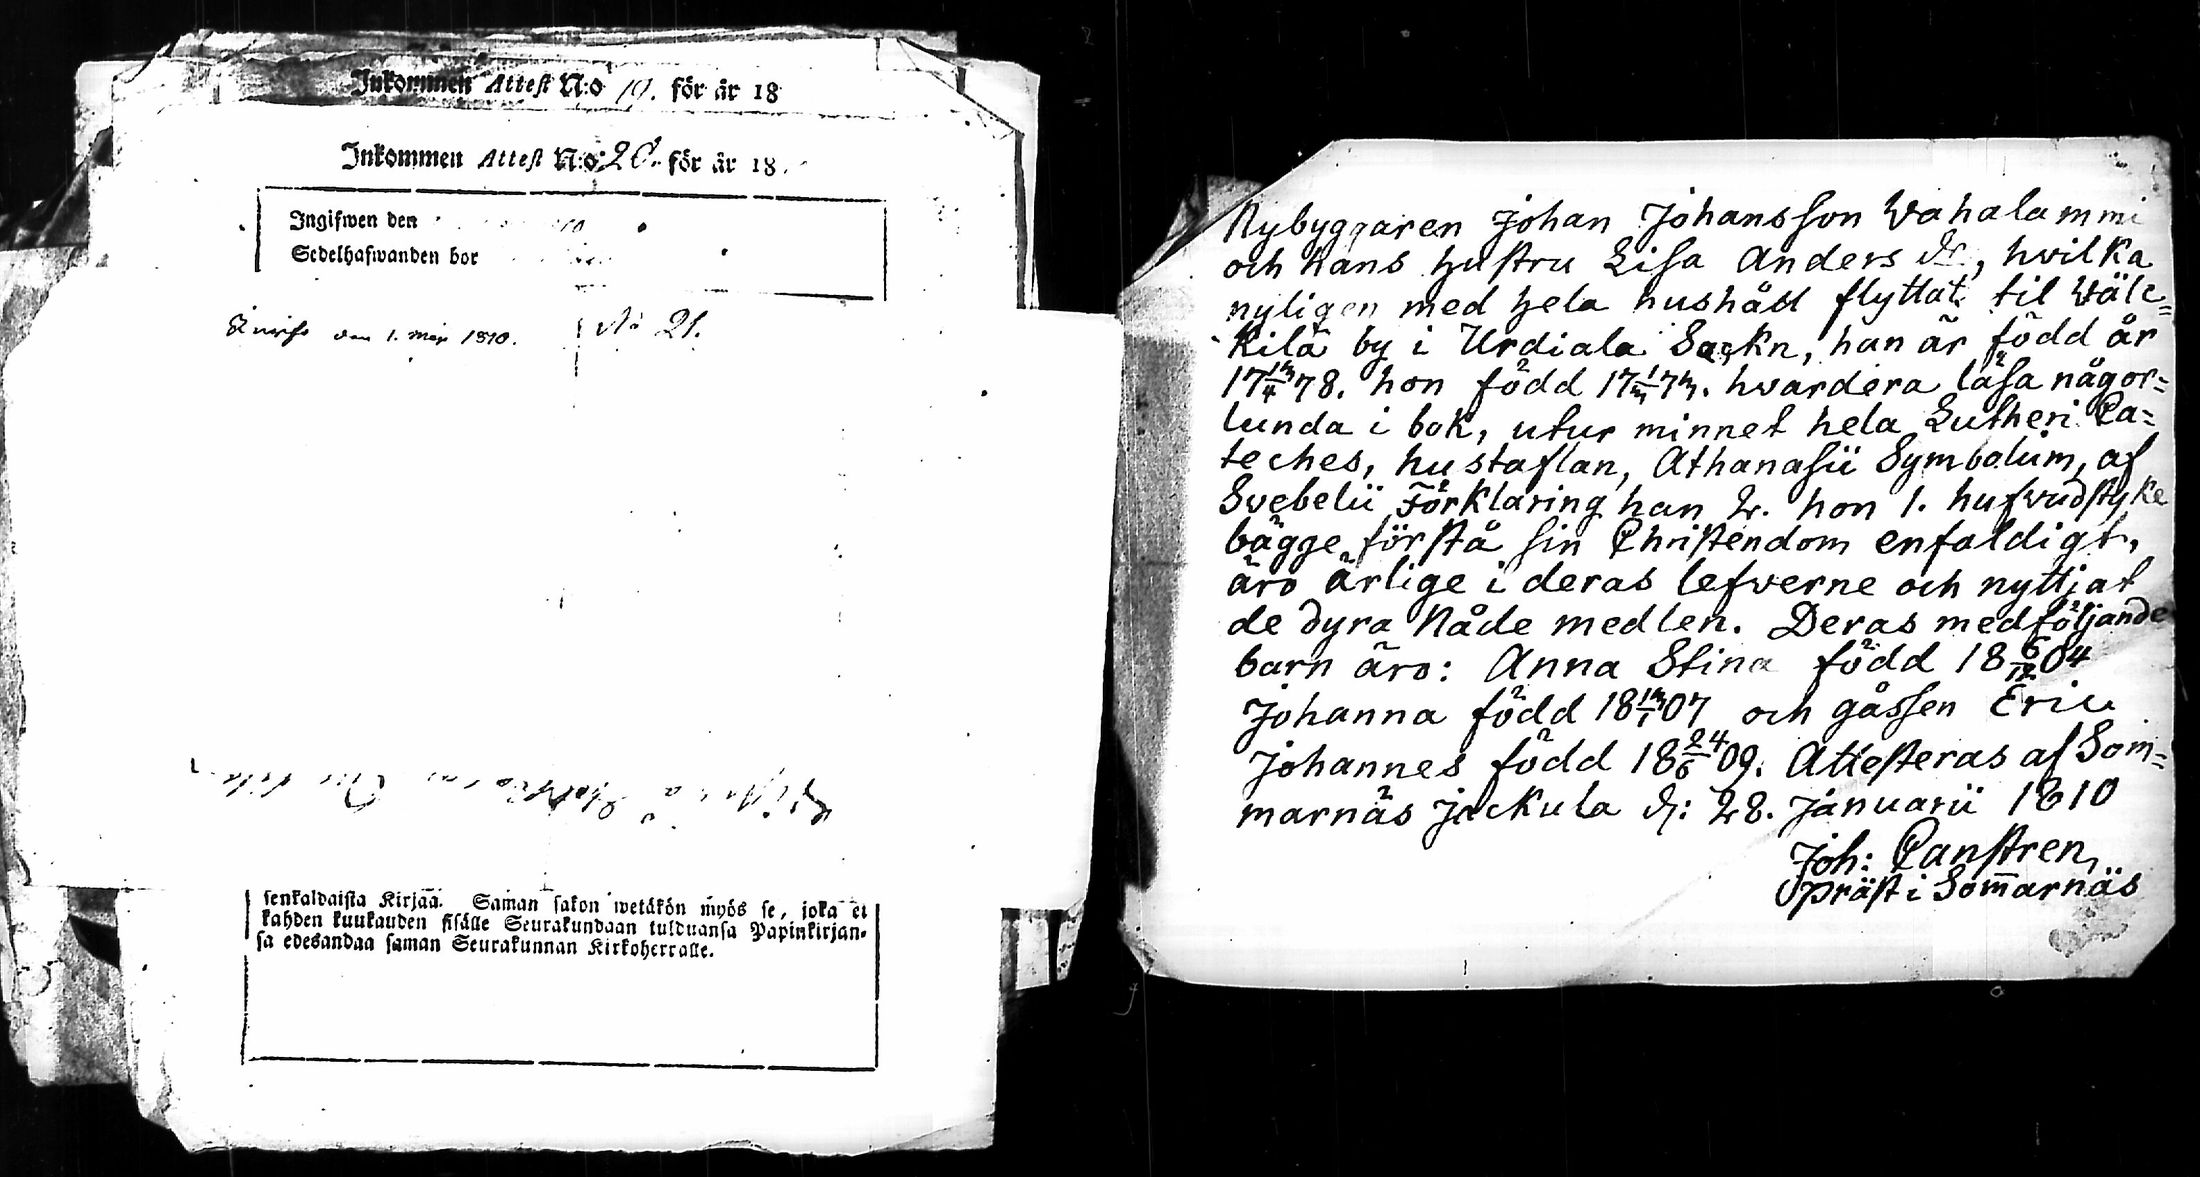 Inkommen Attest N:o 19. för år 18
Inkommen Attest N:o 20. för år 18
Ingifwen den
Sedelhafwanden bor
den 1. Maj 1810. No 21.
senkaldaista Kirjaa. Saman sakon wetäkön myös se, joka ei
kahden kuukauden sisälle Seurakundaan tulduansa Papinkirjan-
sa edesandaa saman Seurakunnan Kirkoherralle.
Nybyggaren Johan Johansson Wahalammi
och hans hustru Lisa Anders dr, hwilka
nyligen med hela hushåll flyttat til Wäle=
kilä by i Urdiala Sockn, han är född år
17 13/4 78. hon född 17 1/3 73. hvardera läsa någor=
lunda i bok, utur minnet hela Lutheri Ca=
teches, hustaflan, Athanasii Symbolum, af
Svebelii Förklaring han 2. hon 1. hufvudstyke
bägge förstå sin Christendom enfaldigt,
äro ärlige i deras lefverne och nyttjat
de dyra Nåde medlen. Deras medföljande
barn äro: Anna Stina född 18 6/12 04
Johanna född 18 13/1 07 och gåssen Eric
Johannes född 18 24/6 09. Attesteras af Som=
marnäs Jockula d: 28. Januarii 1810
Joh: Canstren,
präst i Som̅arnäs